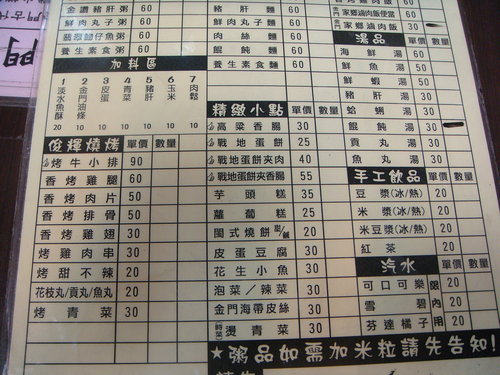 金讚豬肝粥 60
鮮肉丸子粥 60
翡翠𩵚仔魚粥 60
養生素食粥 60
加料區
1 淡水魚酥 20
2 金門油條 10
3 皮蛋 10
4 青菜 10
5 豬肝 10
6 玉米 10
7 肉鬆 10
佐粥燒烤 單價 數量
烤牛小排 90
香烤雞腿 60
香烤肉片 50
香烤排骨 50
香烤雞翅 30
烤雞肉串 30
烤甜不辣 20
花枝丸/貢丸/魚丸 20
烤青菜 30
豬肝麵 60
鮮肉丸子麵 60
肉絲麵 60
餛飩麵 60
養生素食麵 60
精緻小點 單價 數量
高粱香腸 30
戰地蛋餅 25
戰地蛋餅夾肉 40
戰地蛋餅夾香腸 55
芋頭糕 35
蘿蔔糕 25
閩式燒餅 甜/鹹 20
皮蛋豆腐 30
花生小魚 30
泡菜/辣菜 30
金門海帶皮絲 30
時菜 燙青菜 30
家鄉滷肉飯便當 60
金門 家鄉滷肉飯 30
湯品 單價 數量
海鮮湯 60
鮮魚湯 50
鮮蝦湯 50
豬肝湯 30
蛤蜊湯 30
餛飩湯 30
貢丸湯 30
魚丸湯 30
手工飲品 單價 數量
豆漿(冰/熱) 20
米漿(冰/熱) 20
米豆漿(冰/熱) 20
紅茶 20
汽水 單價 數量
可口可樂 20
雪碧 20
芬達橘子 20
限內用
★粥品如需加米粒請先告知!
門古代
門